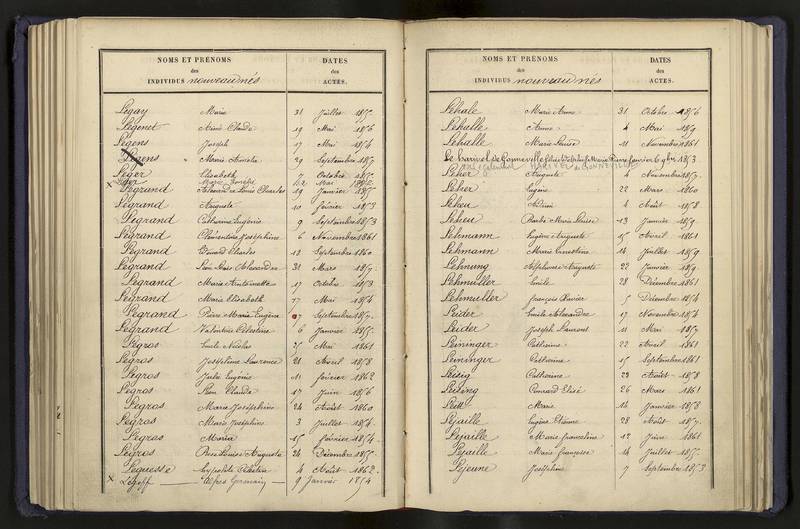 NOMS ET PRÉNOMS DATES
des des
INDIVIDUS nouveau nés ACTES.
Legay Marie 31 Juillet 1855
Legenet Aimé Claude 19 Mai 1856
Legens Joseph 17 Mai 1854
Legens " Marie Amelie 29 Septembre 1857
Leger Elisabeth 7 Octobre 1855
x Leger Marie Joseph 12 Mai
Legrand Alexandre Louis Charles 19 Janvier 1855
Legrand Auguste 10 février 1853
Legrand Catherine Eugénie 9 Septembre 1853
Legrand Clémentine Joséphine 6 Novembre 1861
Legrand Edouard Charles 18 Septembre 1860
Legrand Léon Louis Alexandre 31 Mars 1857
Legrand Marie Antoinette 17 Octobre 1853
Legrand Marie Elisabeth 17 Mai 1854
Legrand Pierre Marie Eugène 27 Septembre 1857
Legrand Valentine Célestine 6 Janvier 1855
Legros Emile Nicolas 25 Mai 1861
Legros Joséphine Laurence 21 Avril 1858
Legros Julie Eugénie 11 février 1862
Legros Léon Claude 17 Juin 1856
Legros Marie Joséphine 24 Août 1860
Legros Marie Joséphine 3 Juillet 1854
Legros Maria 15 février 1854
Legros Rose Louise Auguste 24 Décembre 1855
Leguesse Hypolite Célestin 4 Août 1862
x Legoff Alfred Germain 9 Janvier 1854
NOMS ET PRÉNOMS DATES
des des
INDIVIDUS nouveau nés ACTES.
Lehalle Marie Anne 31 Octobre 1856
Lehalle Anne 4 Mai 1859
Lehalle Marie Louise 11 Novembre 1861
Le harivel de Gonneville Marie Pierre 6 9bre 1853
HARIVEL de GONNEVILLE
Leher Auguste 4 Novembre 1857
Leher Eugène 22 Mars 1860
Leheu Adrien 4 Août 1858
Leheu Barbe Marie Louise 13 Janvier 1859
Lehmann Eugène Auguste 15 Avril 1861
Lehmann Marie Ernestine 14 Juillet 1859
Lehnung Alphonse Auguste 22 Janvier 1859
Lehmüller Emile 28 Décembre 1861
Lehmuller François Xavier 5 Décembre 1854
Leider Emile Alexandre 17 Novembre 1856
Leider Joseph Laurent 11 Mai 1857
Leininger Catherine 22 Avril 1861
Leininger Catherine 15 Septembre 1861
Leisig Catherine 23 Août 1858
Leising Conrard Elisé 26 Mars 1861
Marie 14 Janvier 1858
Lejaille Eugène Etienne 28 Août 1857
Lejaille Marie francoline 12 Juin 1861
Lejaille Marie françoise 14 Juillet 1855
Lejeune Joséphine 7 Septembre 1853